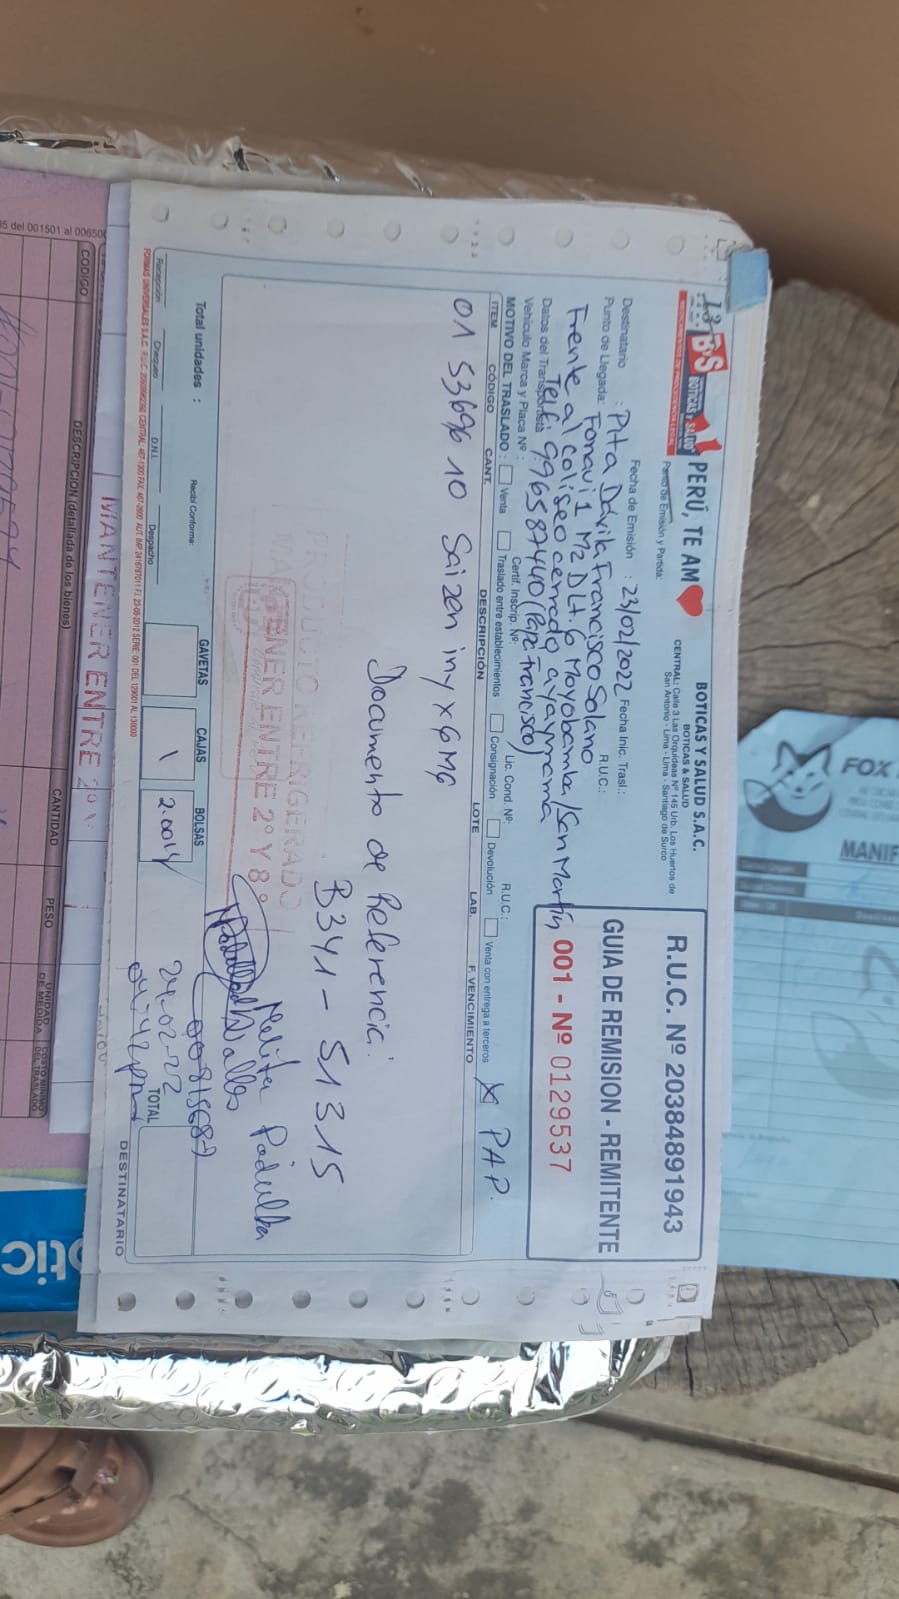 13
B'S
BOTICAS Y SALUD
PERÚ, TE AM
BOTICAS Y SALUD S.A.C.
BOTICAS & SALUD
CENTRAL: Calle 3 Las Orquídeas Nº 145 Urb. Los Huertos de
San Antonio - Lima - Lima - Santiago de Surco
Punto de Emisión y Partida:
R.U.C. Nº 20384891943
GUIA DE REMISION - REMITENTE
001 - Nº 0129537
Fecha de Emisión : 23/02/2022 Fecha Inic. Trasl.:
Destinatario : Pita Dávila Francisco Solano R.U.C.:
Punto de Llegada: Fonavi 1 Mz D Lt. 6 Moyobamba/San Martín
Frente al Coliseo cerrado ayaymama
Datos del Transportista
Telf: 996587440 (Papá Francisco)
Vehículo Marca y Placa Nº : Certif. Inscrip. Nº: Lic. Cond. Nº: R.U.C.:
MOTIVO DEL TRASLADO : Venta Traslado entre establecimientos Consignación Devolución Venta con entrega a terceros X PAP.
ITEM CÓDIGO CANT. DESCRIPCIÓN LOTE LAB. F. VENCIMIENTO
01 53696 10 Saizen iny x 6 MG
Documento de Referencia:
B341 - 51315
PRODUCTO REFRIGERADO
MANTENER ENTRE 2° Y 8°
Melita Padulla
00815687
24-02-22
04:42 pm
Total unidades : Recibí Conforme: GAVETAS CAJAS BOLSAS TOTAL
1 2.0014
Recepción Chequeo D.N.I. Despacho
DESTINATARIO
MANTENER ENTRE 2°
del 001501 al
CÓDIGO DESCRIPCIÓN (detallada de los bienes) CANTIDAD PESO UNIDAD DE MEDIDA COSTO MINIMO DEL TRASLADO
otic
FOX
MANIF